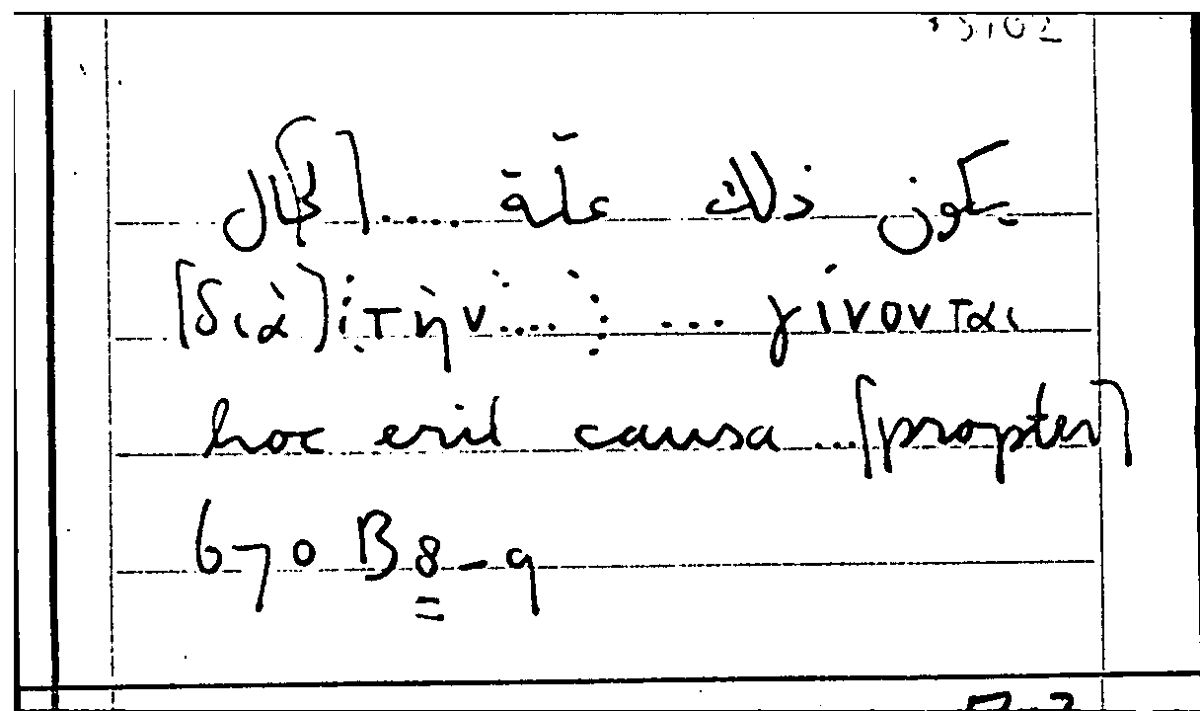 يكون ذلك علة ..... [لحال
[διὰ] τὴν .... ... γίνονται
hoc erit causa ... [propter]
670 B 8-9